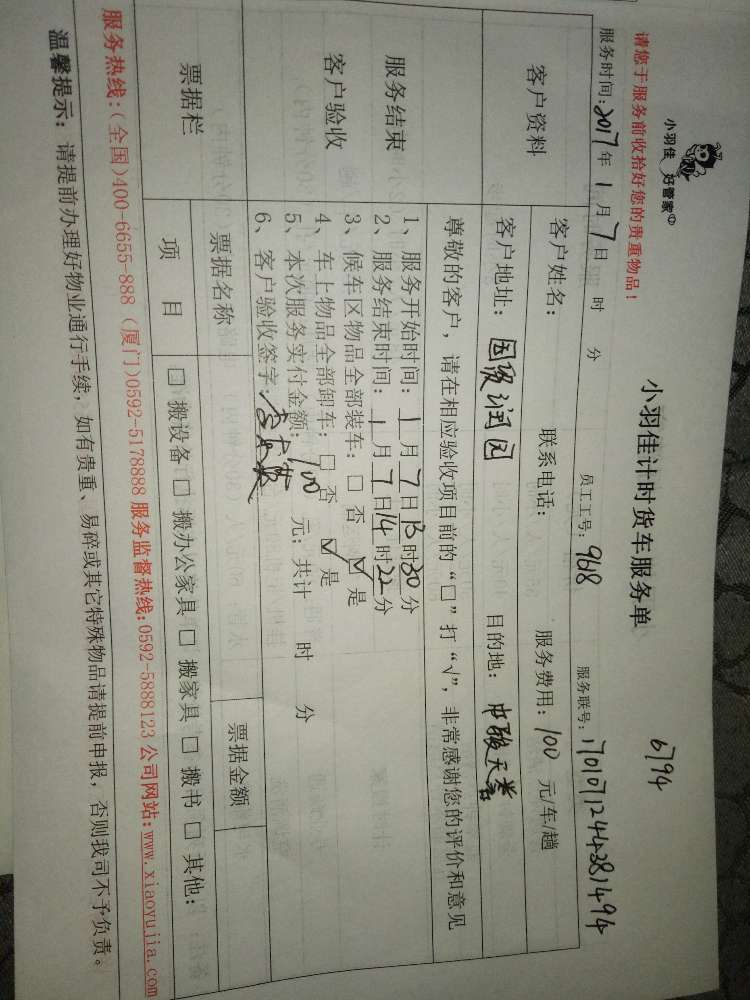 小羽佳 好管家
小羽佳计时货车服务单
6794
请您于服务前收拾好您的贵重物品！
服务时间：2017年1月7日 时 分 员工工号：968 服务联号：170107124438149 4
客户资料
客户姓名： 联系电话： 服务费用：100 元/车/趟
客户地址：国贸润园 目的地：中骏天誉
服务结束
客户验收
尊敬的客户，请在相应验收项目前的“□”打“√”，非常感谢您的评价和意见
1、服务开始时间：1月7日13时30分
2、服务结束时间：1月7日14时22分
3、候车区物品全部装车：□ 否 ☑ 是
4、车上物品全部卸车：□ 否 ☑ 是
5、本次服务实付金额：100 元；共计 时 分
6、客户验收签字：
票据栏
票据名称 票据金额
项 目 □ 搬设备 □ 搬办公家具 □ 搬家具 □ 搬书 □ 其他：
服务热线：（全国）400-6655-888（厦门）0592-5178888 服务监督热线：0592-5888123 公司网站：www.xiaoyujia.com
温馨提示：请提前办理好物业通行手续，如有贵重、易碎或其它特殊物品请提前申报，否则我司不予负责。